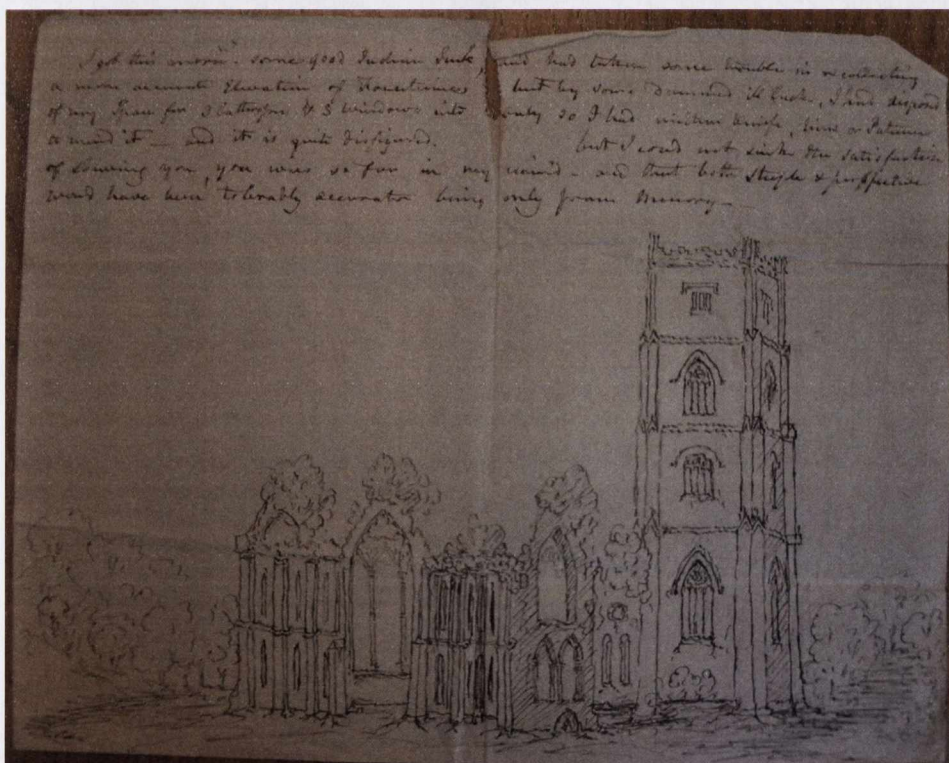 I got this morn.g some good Indian Ink, and had taken some trouble in recollecting
a more accurate Elevation of Fountaines but by some Damned ill Luck, I had disposed
of my Space for 3 Buttresses & 3 windows into only so I had written Knife, have a Patience
to mend it — and it is quite disfigured. but I could not sink the satisfaction
of shewing you, you were so far in my mind – and that both Steeple & perspective
would have been tolerably accurate being only from Memory —